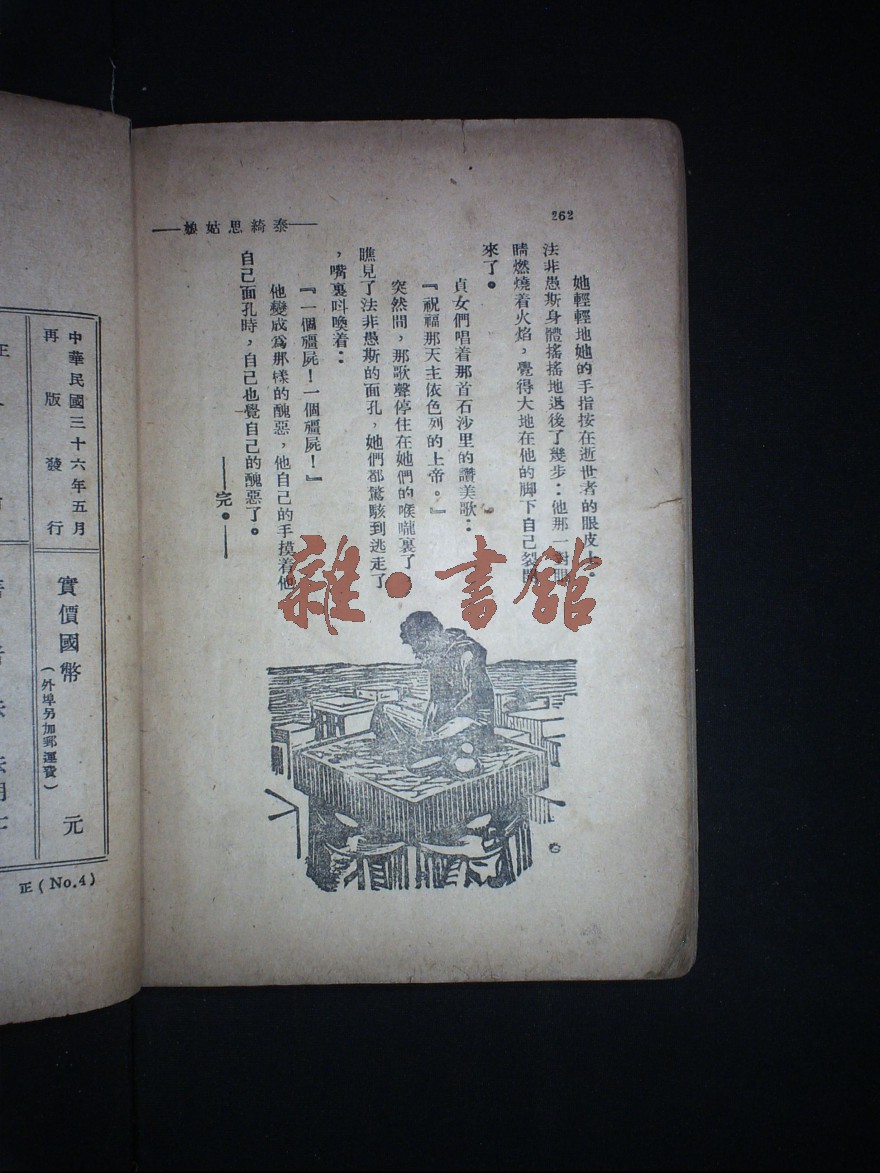 262
——泰綺思姑娘——
她輕輕地她的手指按在逝世者的眼皮上.
法非愚斯身體搖搖地退後了幾步:他那一對眼
睛燃燒着火焰,覺得大地在他的脚下自己裂開
來了。
貞女們唱着那首石沙里的讚美歌:
『祝福那天主依色列的上帝。』
突然間,那歌聲停住在她們的喉嚨裏了
瞧見了法非愚斯的面孔,她們都驚駭到逃走了
,嘴裏呌喚着:
『一個殭屍!一個殭屍!』
他變成爲那樣的醜惡,他自己的手摸着他
自己面孔時,自己也覺自己的醜惡了。
——完。——
雜·書館
中華民國三十六年五月
再版發行
實價國幣 元
(外埠另加郵運費)
正(No.4)